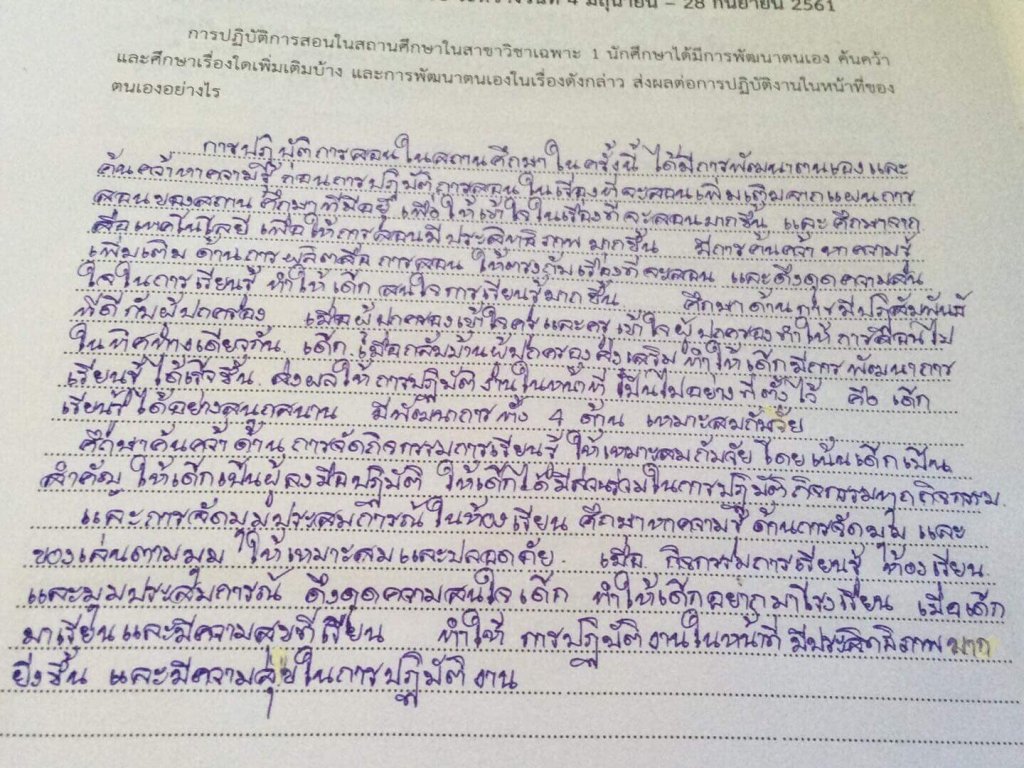 ระหว่างวันที่ 4 มิถุนายน – 28 กันยายน 2561
การปฏิบัติการสอนในสถานศึกษาในสาขาวิชาเฉพาะ 1 นักศึกษาได้มีการพัฒนาตนเอง ค้นคว้า
และศึกษาเรื่องใดเพิ่มเติมบ้าง และการพัฒนาตนเองในเรื่องดังกล่าว ส่งผลต่อการปฏิบัติงานในหน้าที่ของ
ตนเองอย่างไร
การปฏิบัติการสอนในสถานศึกษาในครั้งนี้ ได้มีการพัฒนาตนเองและ
ค้นคว้าหาความรู้ ก่อนการปฏิบัติการสอน ในเรื่องที่จะสอนเพิ่มเติมจากแผนการ
สอนของสถานศึกษาที่มีอยู่ เพื่อให้เข้าใจในเรื่องที่จะสอนมากขึ้น และศึกษาจาก
สื่อเทคโนโลยี เพื่อให้การสอนมีประสิทธิภาพมากขึ้น มีการค้นคว้า หาความรู้
เพิ่มเติม ด้านการผลิตสื่อ การสอน ให้ตรงกับเรื่องที่จะสอน และดึงดูดความสน
ใจในการเรียนรู้ ทำให้เด็กสนใจการเรียนรู้มากขึ้น ศึกษาด้านการมีปฏิสัมพันธ์
ที่ดีกับผู้ปกครอง เมื่อผู้ปกครองเข้าใจครูและครูเข้าใจผู้ปกครองทำให้การสอนไป
ในทิศทางเดียวกัน เด็กเมื่อกลับบ้านผู้ปกครองส่งเสริม ทำให้เด็กมีการพัฒนาการ
เรียนรู้ได้เร็วขึ้น ส่งผลให้การปฏิบัติงานในหน้าที่เป็นไปอย่างที่ตั้งไว้ คือ เด็ก
เรียนรู้ได้อย่างสนุกสนาน มีพัฒนาการทั้ง 4 ด้าน เหมาะสมกับวัย
ศึกษาค้นคว้าด้านการจัดกิจกรรมการเรียนรู้ ให้เหมาะสมกับวัย โดยเน้นเด็กเป็น
สำคัญ ให้เด็กเป็นผู้ลงมือปฏิบัติ ให้เด็กได้มีส่วนร่วมในการปฏิบัติกิจกรรมทุกกิจกรรม
และการจัดมุมประสบการณ์ในห้องเรียน ศึกษาหาความรู้ด้านการจัดมุม และ
ของเล่นตามมุม ให้เหมาะสมและปลอดภัย เมื่อ กิจกรรมการเรียนรู้ ห้องเรียน
และมุมประสบการณ์ ดึงดูดความสนใจเด็ก ทำให้เด็กอยากมาโรงเรียน เมื่อเด็ก
มาเรียนและมีความสุขที่เรียน ทำให้ การปฏิบัติงานในหน้าที่ มีประสิทธิภาพมาก
ยิ่งขึ้น และมีความสุขในการปฏิบัติงาน